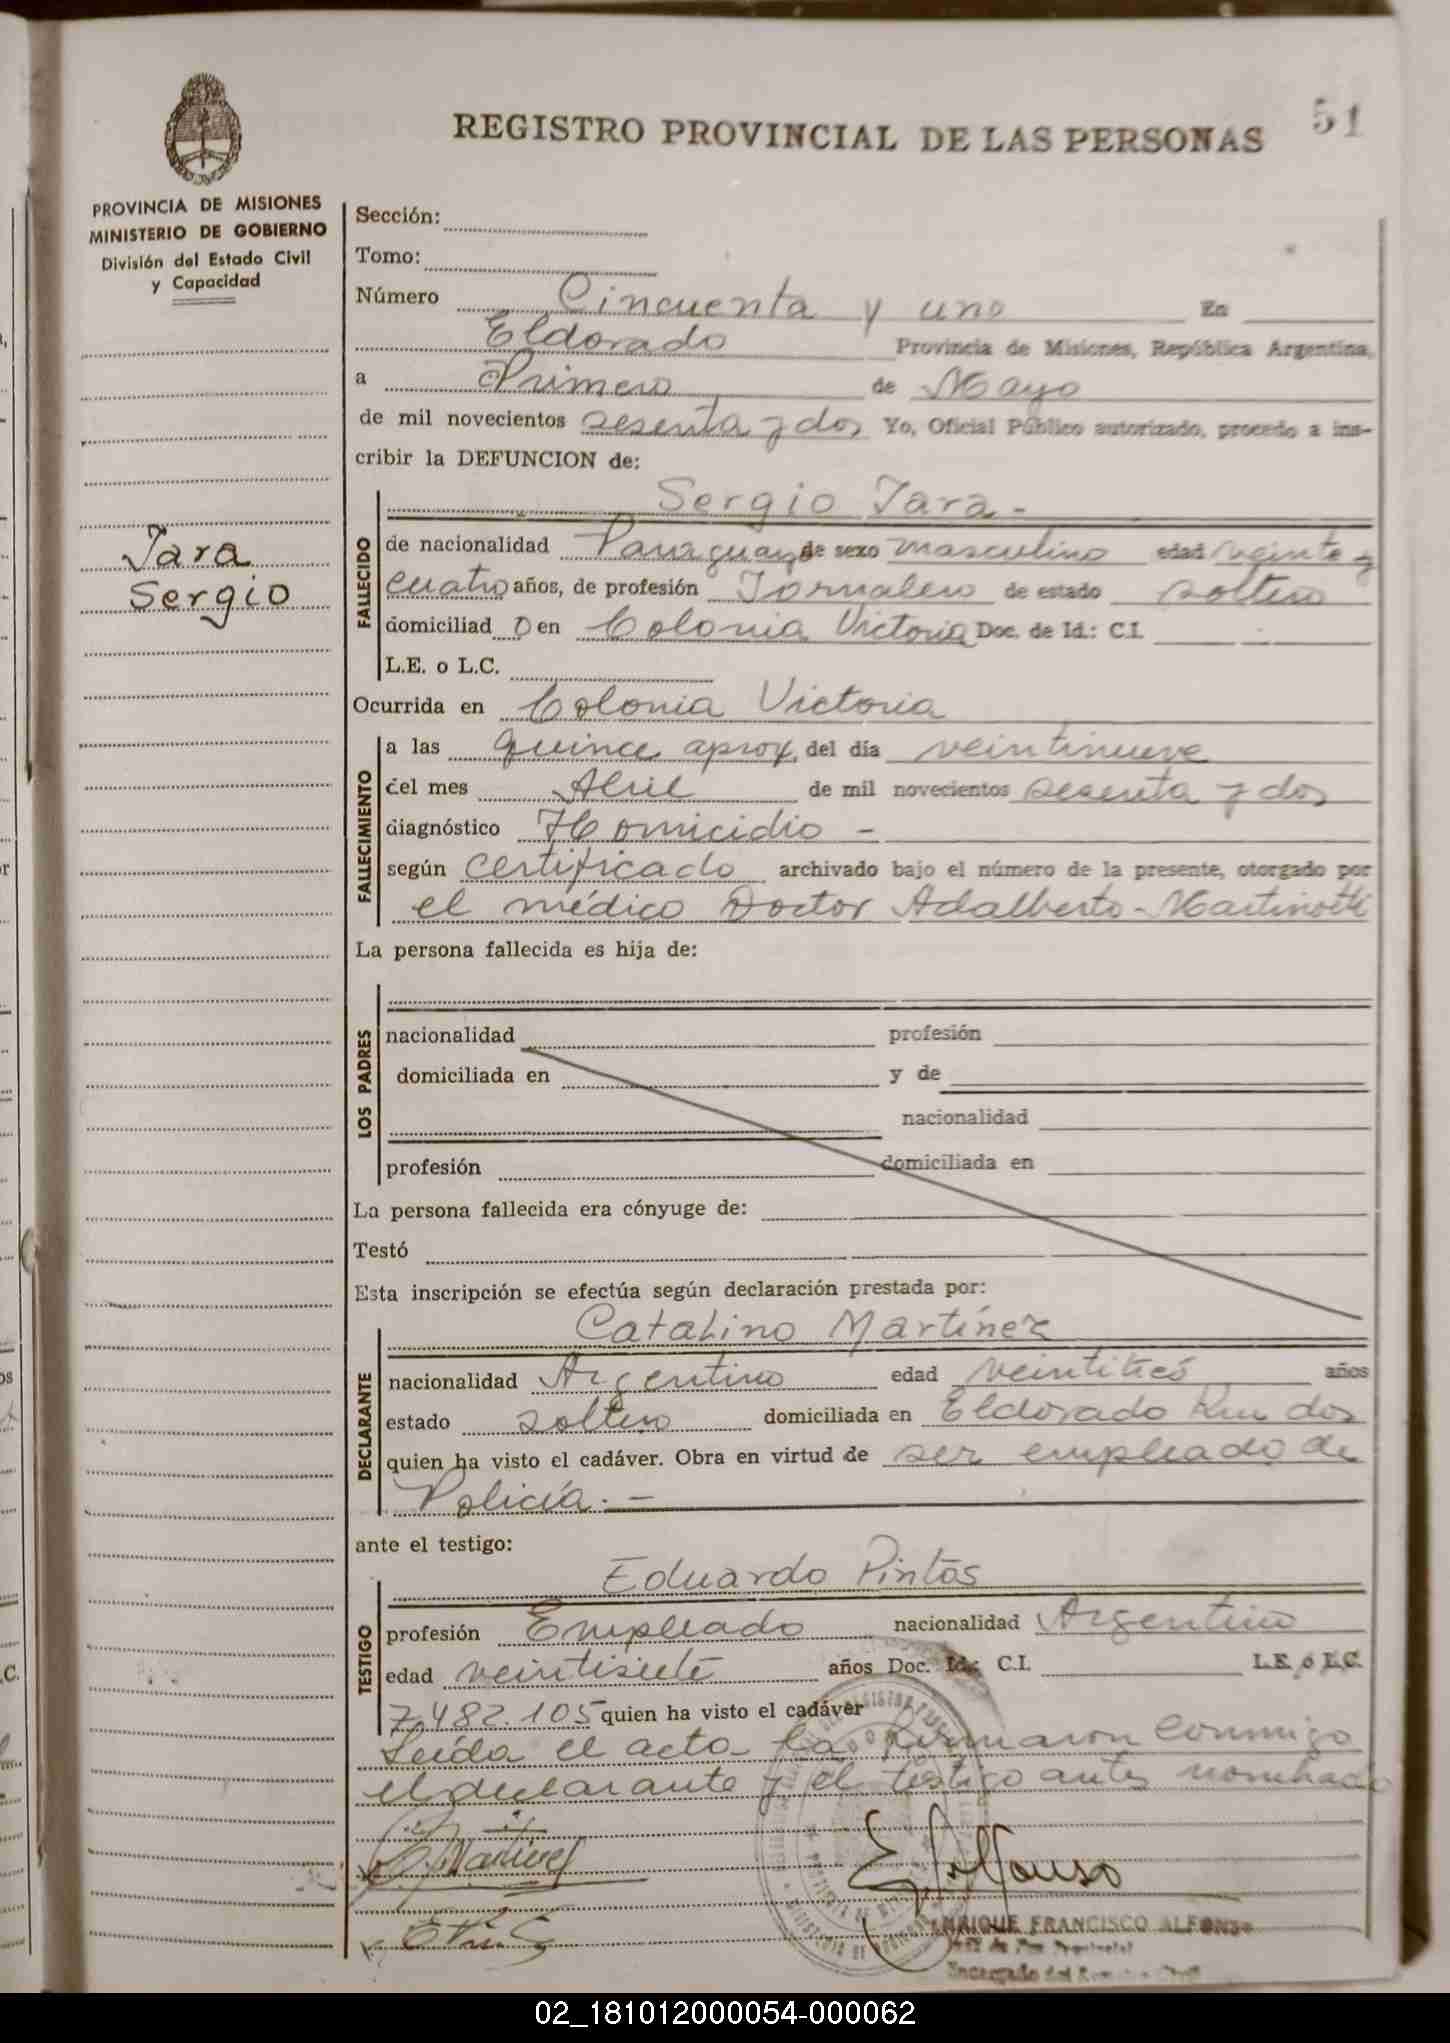 51
REGISTRO PROVINCIAL DE LAS PERSONAS
PROVINCIA DE MISIONES
MINISTERIO DE GOBIERNO
División del Estado Civil
y Capacidad
Jara
Sergio
Sección:
Tomo:
Número Cincuenta y uno En
Eldorado Provincia de Misiones, República Argentina,
a Primero de Mayo
de mil novecientos sesenta y dos Yo, Oficial Público autorizado, procedo a ins-
cribir la DEFUNCION de:
FALLECIDO
Sergio Jara -
de nacionalidad Paraguay de sexo masculino edad veinte y
cuatro años, de profesión Jornalero de estado soltero
domiciliad o en Colonia Victoria Doc. de Id.: C.I.
L.E. o L.C.
Ocurrida en Colonia Victoria
FALLECIMIENTO
a las quince aprox. del día veintinueve
del mes Abril de mil novecientos sesenta y dos
diagnóstico Homicidio -
según certificado archivado bajo el número de la presente, otorgado por
el médico Doctor Adalberto Martinotti
La persona fallecida es hija de:
LOS PADRES
nacionalidad profesión
domiciliada en y de
nacionalidad
profesión domiciliada en
La persona fallecida era cónyuge de:
Testó
Esta inscripción se efectúa según declaración prestada por:
DECLARANTE
Catalino Martínez
nacionalidad Argentino edad veintitrés años
estado soltero domiciliada en Eldorado Km dos
quien ha visto el cadáver. Obra en virtud de ser empleado de
Policía. -
ante el testigo:
TESTIGO
Eduardo Pintos
profesión Empleado nacionalidad Argentino
edad veintisiete años Doc. Id.: C.I. L.E. o L.C.
7.482.105 quien ha visto el cadáver
Leída el acta la firmaron conmigo
el declarante y el testigo antes nombrado
C. Martínez
E. Alfonso
ENRIQUE FRANCISCO ALFONSO
Encargado del
02_181012000054-000062